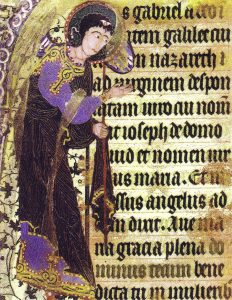 s gabriel a deo i
item galilee cui
n nazareth
ad virginem despon
tam viro cui nom
at ioseph de domo
uid et nomen vir
us maria. Et
ssus angelus ad
m dixit. Aue ma
na gracia plena do
minus tecum bene
dicta tu in mulierib